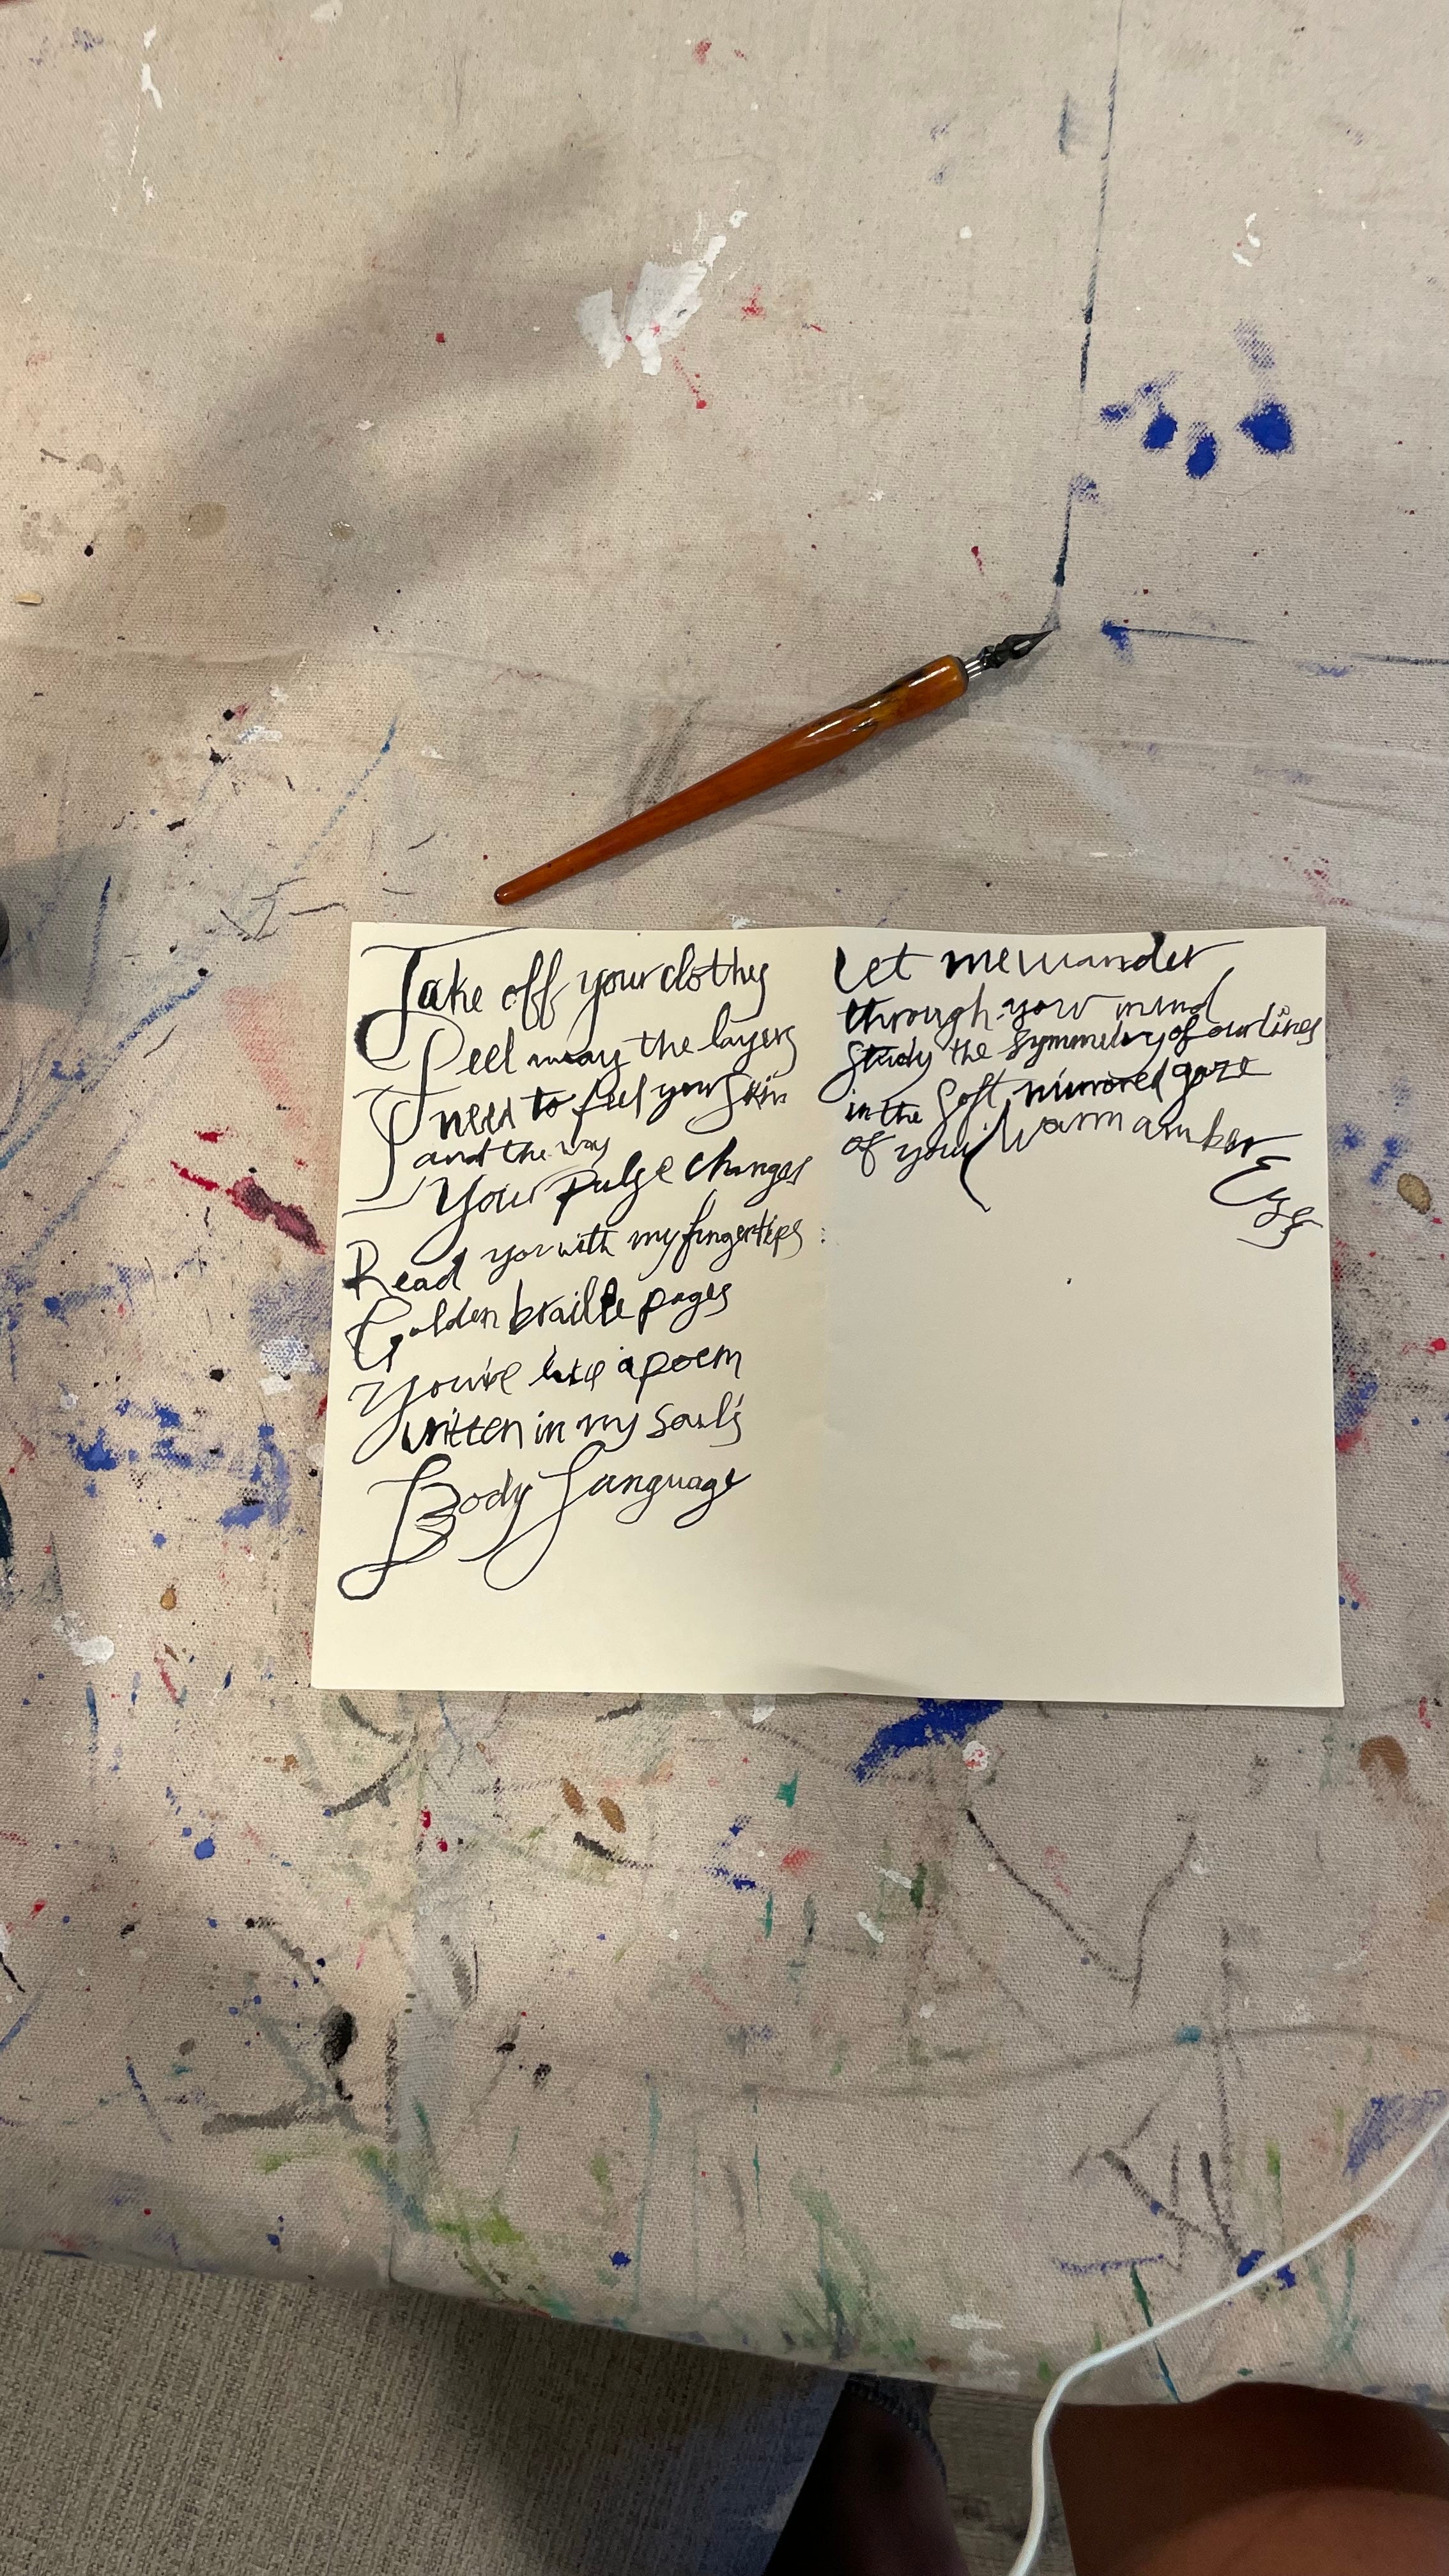 Take off your clothes
Peel away the layers
I need to feel your skin
and the way
Your pulse changes
Read you with my fingertips
Golden braille pages
You're like a poem
written in my soul's
Body Language
Let me wander
through your mind
Study the symmetry of our lines
in the soft mirrored gaze
of your warm amber
Eyes